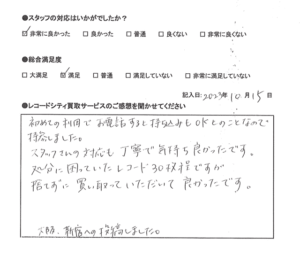 ●スタッフの対応はいかがでしたか？
☑非常に良かった □良かった □普通 □良くない □非常に良くない
●総合満足度
□大満足 ☑満足 □普通 □満足していない □非常に満足していない
記入日:2023年10月15日
●レコードシティ買取サービスのご感想を聞かせてください
初めての利用でお電話すると持ち込みもOKとのことなので
持参しました。
スタッフさんの対応も丁寧で気持ち良かったです。
処分に困っていたレコード30枚程ですが
捨てずに買い取っていただいて良かったです。
新宿への投稿しました。